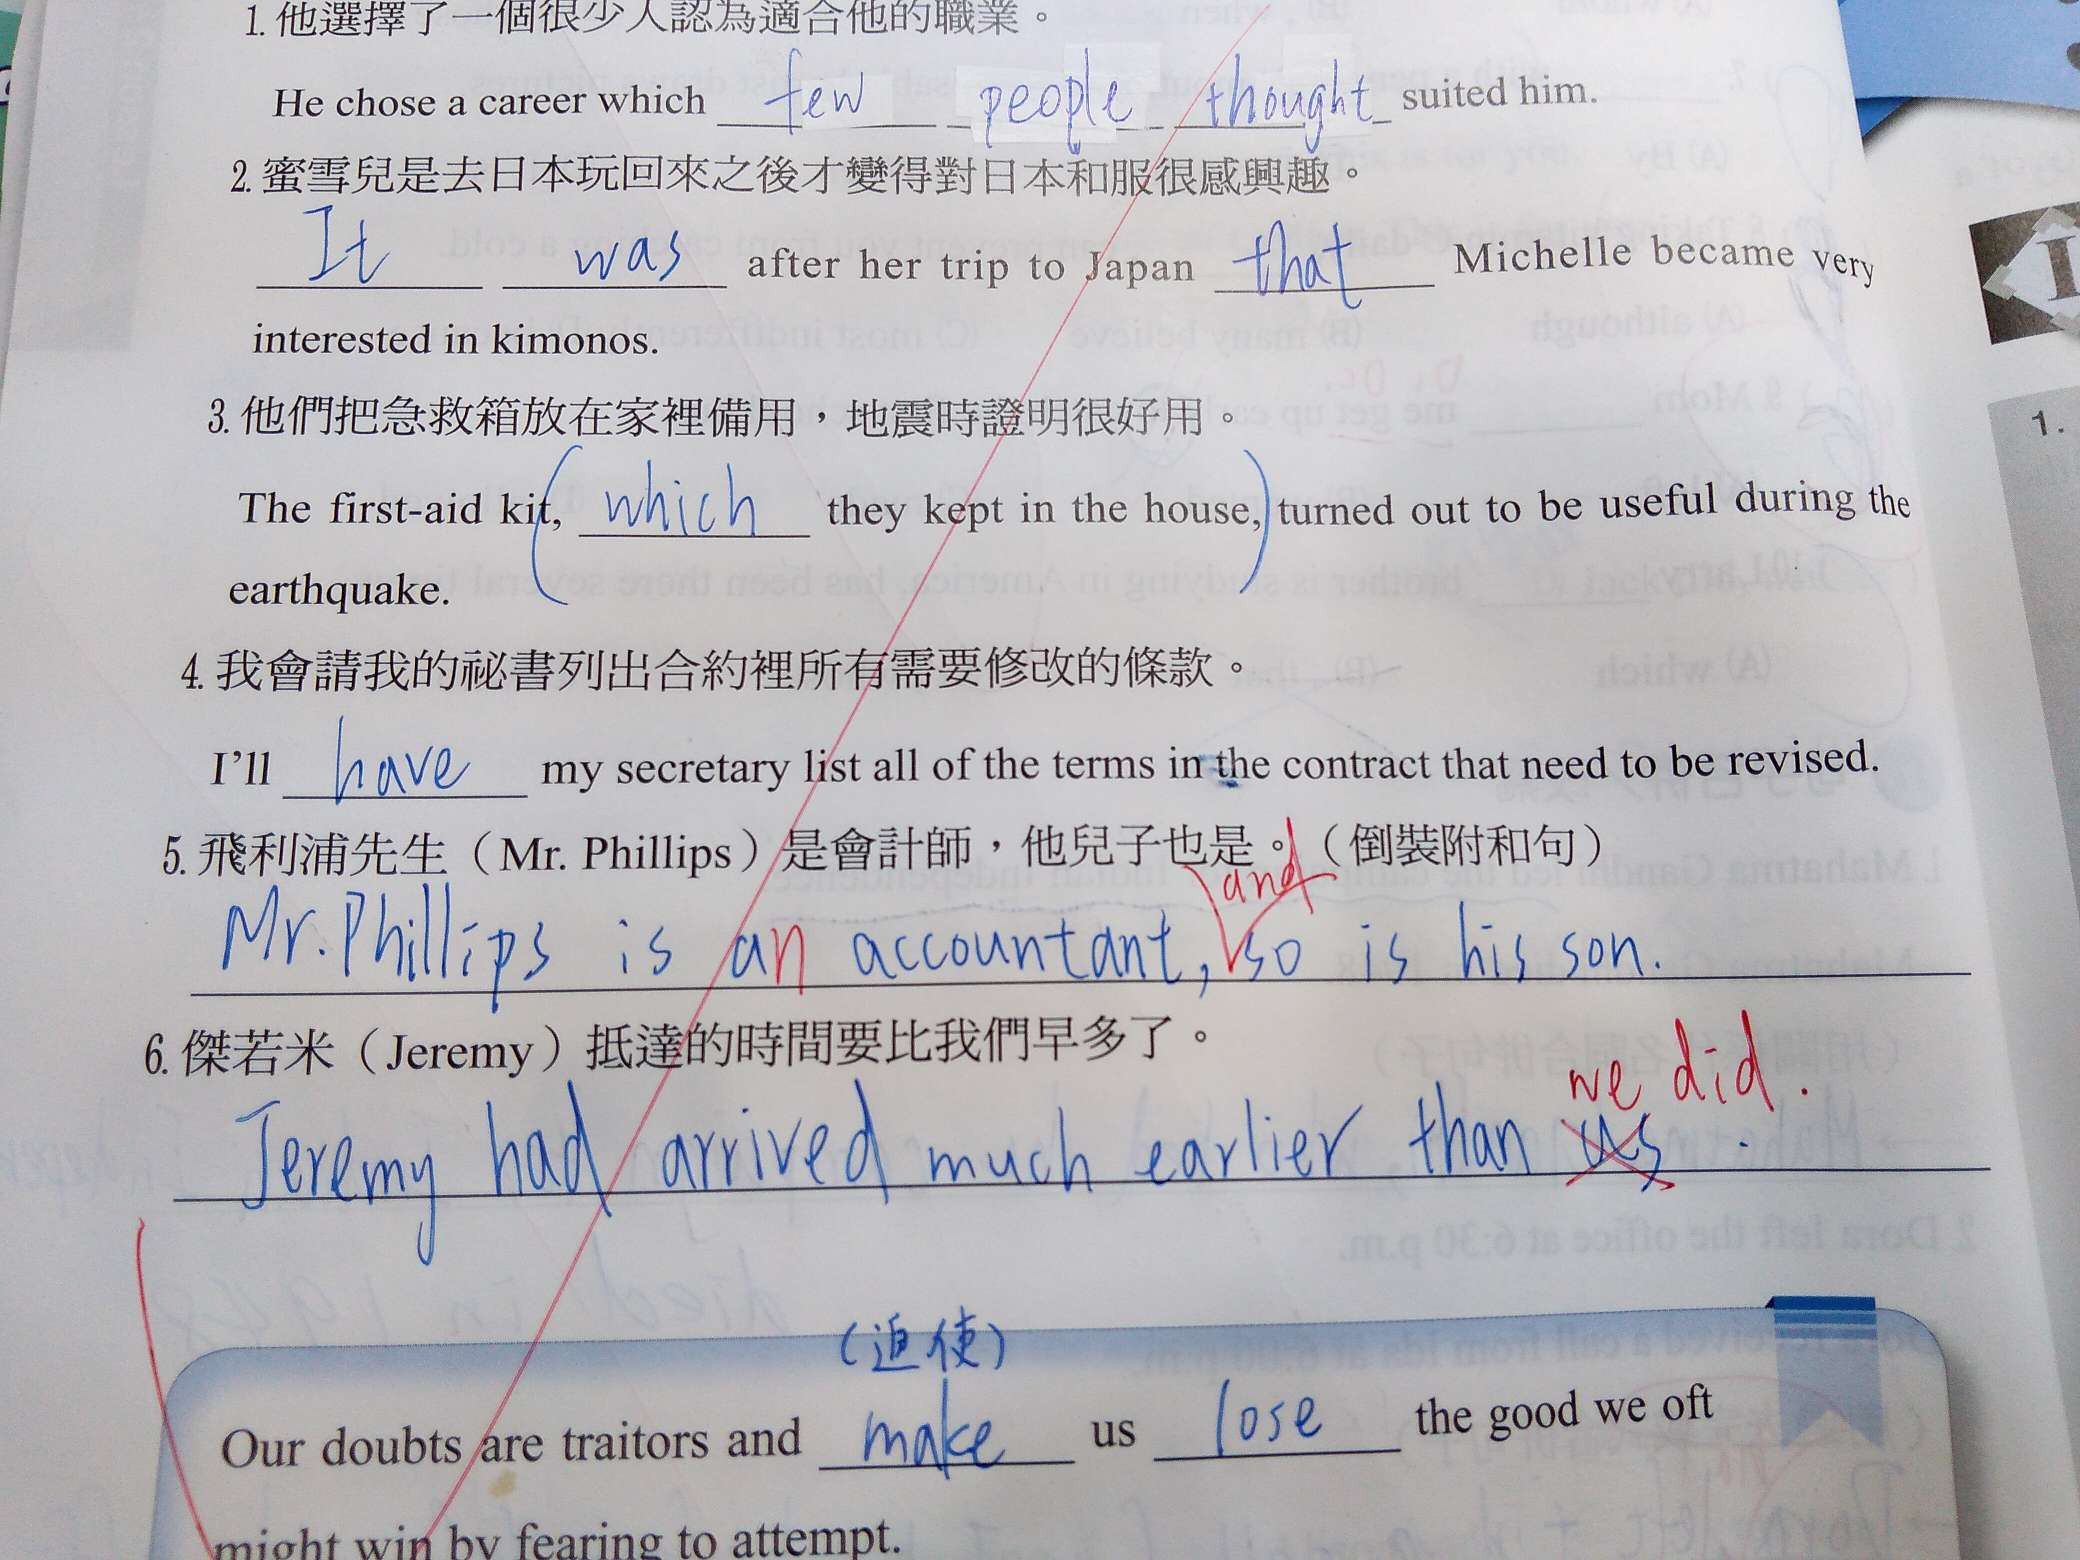 1. 他選擇了一個很少人認為適合他的職業。
He chose a career which few people thought suited him.
2. 蜜雪兒是去日本玩回來之後才變得對日本和服很感興趣。
It was after her trip to Japan that Michelle became very
interested in kimonos.
3. 他們把急救箱放在家裡備用，地震時證明很好用。
The first-aid kit, (which they kept in the house,) turned out to be useful during the
earthquake.
4. 我會請我的祕書列出合約裡所有需要修改的條款。
I'll have my secretary list all of the terms in the contract that need to be revised.
5. 飛利浦先生（Mr. Phillips）是會計師，他兒子也是。（倒裝附和句）
and
Mr. Phillips is an accountant, so is his son.
6. 傑若米（Jeremy）抵達的時間要比我們早多了。
we did.
Jeremy had arrived much earlier than us.
(迫使)
Our doubts are traitors and make us lose the good we oft
might win by fearing to attempt.
1.